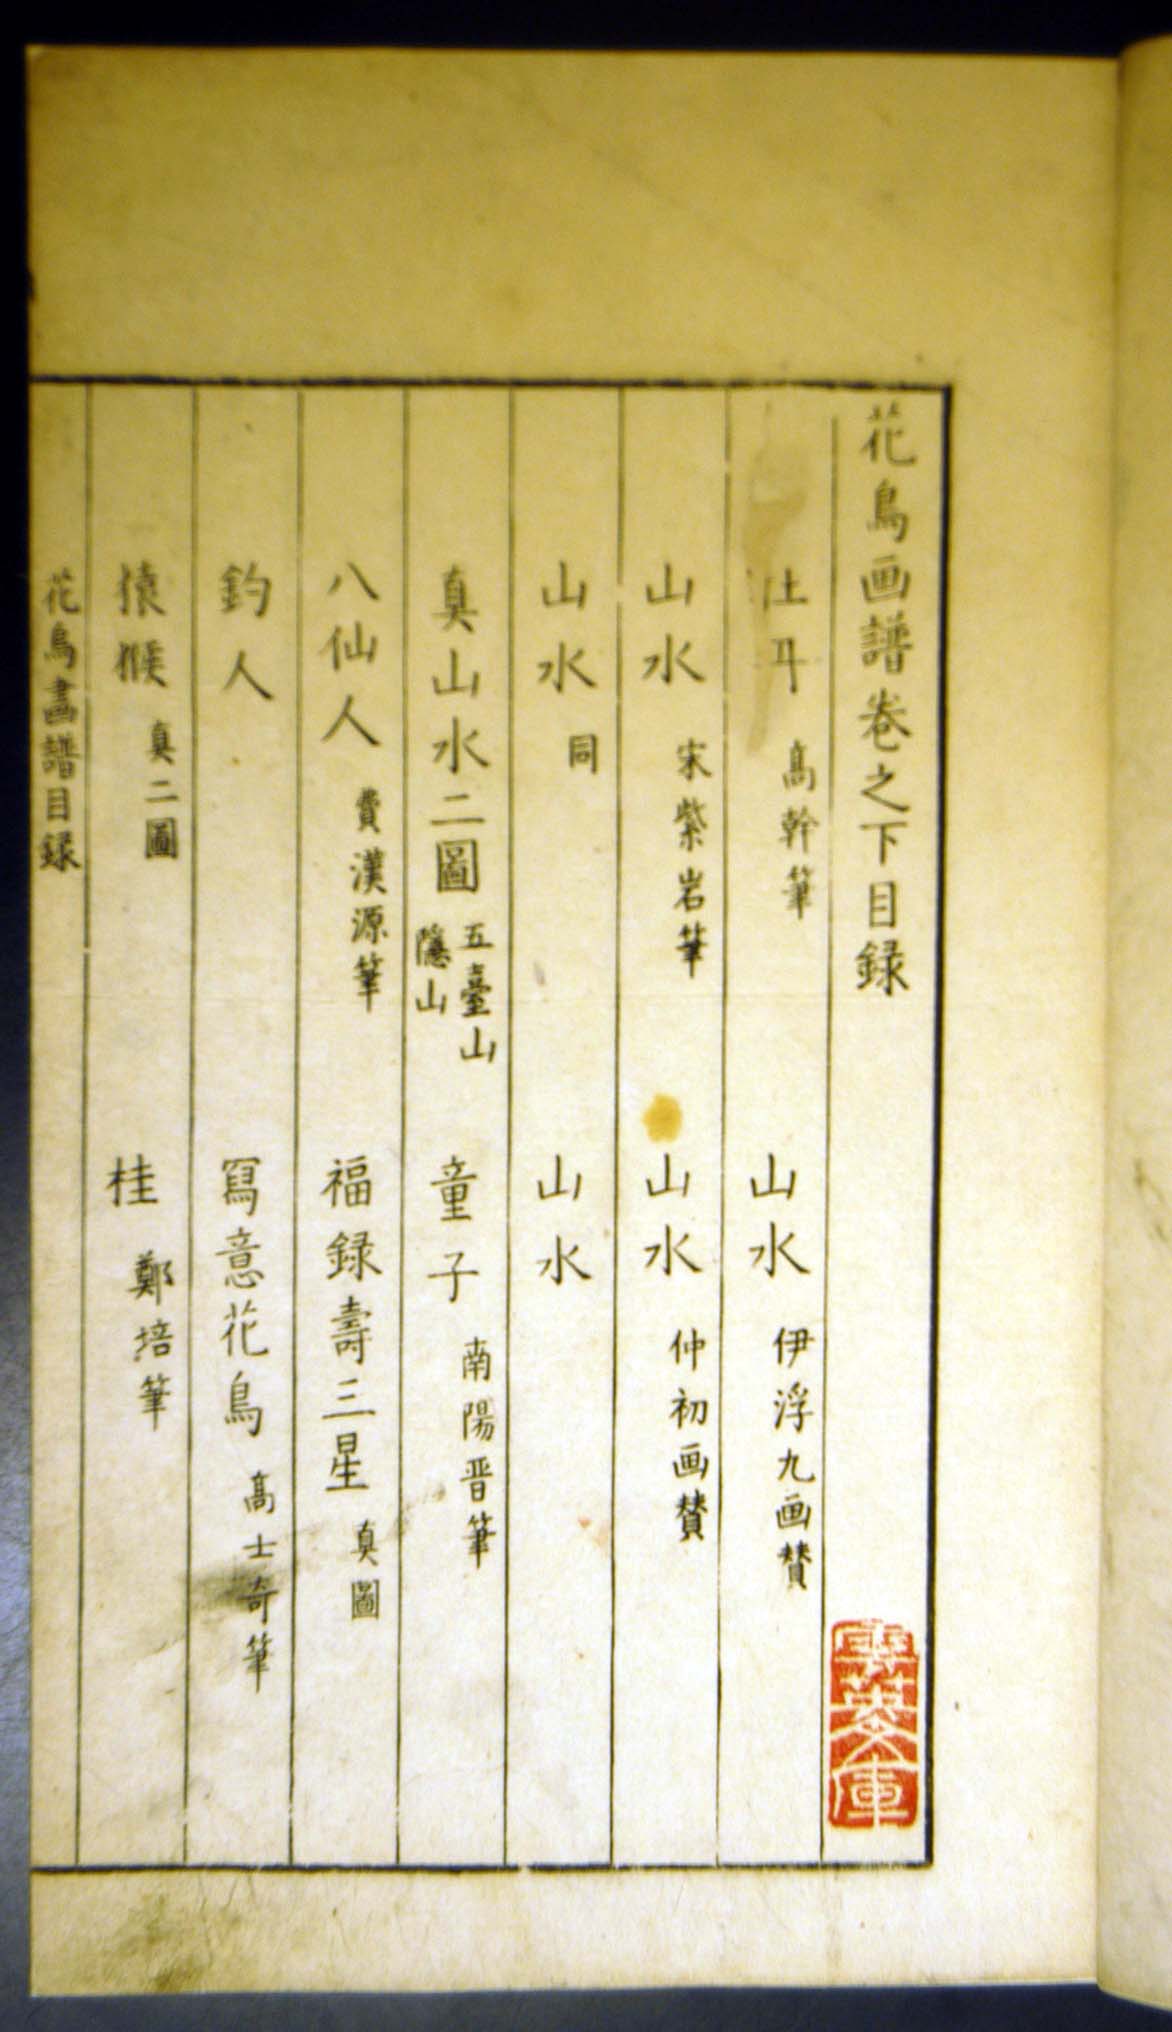 花鳥画譜巻之下目録
高幹筆
山水 伊浮九画賛
山水 宋紫岩筆
山水 仲初画賛
山水 同
山水
真山水二圖 五臺山 隱山
童子 南陽晋筆
八仙人 費漢源筆
福録壽三星 真圖
釣人
寫意花鳥 高士奇筆
猿猴 真二圖
桂 鄭培筆
花鳥畫譜目録
英文庫